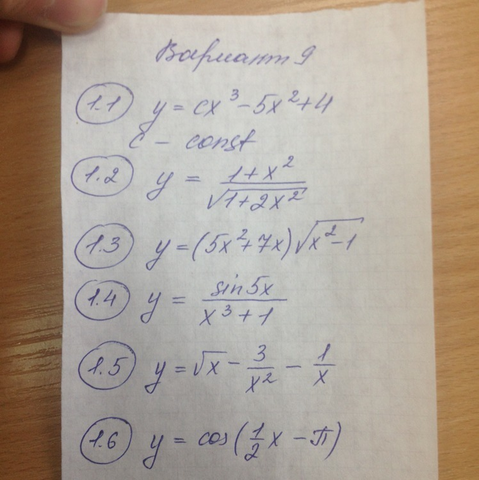 Вариант 9
1.1 y = cx³ - 5x² + 4
c - const
1.2 y = (1 + x²) / √(1 + 2x²)
1.3 y = (5x² + 7x)√(x² - 1)
1.4 y = sin5x / (x³ + 1)
1.5 y = √x - 3/x² - 1/x
1.6 y = cos(1/2 x - π)